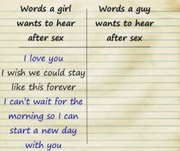 Words a girl
wants to hear
after sex
Words a guy
wants to hear
after sex
I love you
I wish we could stay
like this forever
I can't wait for the
morning so I can
start a new day
with you